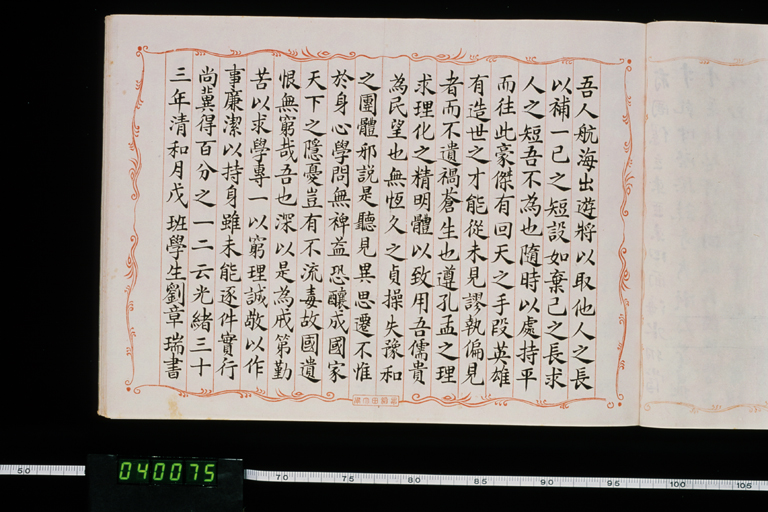 吾人航海出遊將以取他人之長
以補一己之短設如棄己之長求
人之短吾不為也隨時以處持平
而往此豪傑有回天之手段英雄
有造世之才能從未見謬執偏見
者而不遺禍蒼生也遵孔孟之理
求理化之精明體以致用吾儒貴
為民望也無恆久之貞操失豫和
之團體邪説是聽見異思遷不惟
於身心學問無裨益恐釀成國家
天下之隱憂豈有不流毒故國遺
恨無窮哉吾也深以是為戒第勤
苦以求學專一以窮理誠敬以作
事廉潔以持身雖未能逐件實行
尚冀得百分之一二云光緒三十
三年清和月戊班學生劉章瑞書
040075
5.0 7.0 7.5 8.0 8.5 9.0 9.5 10.0 10.5